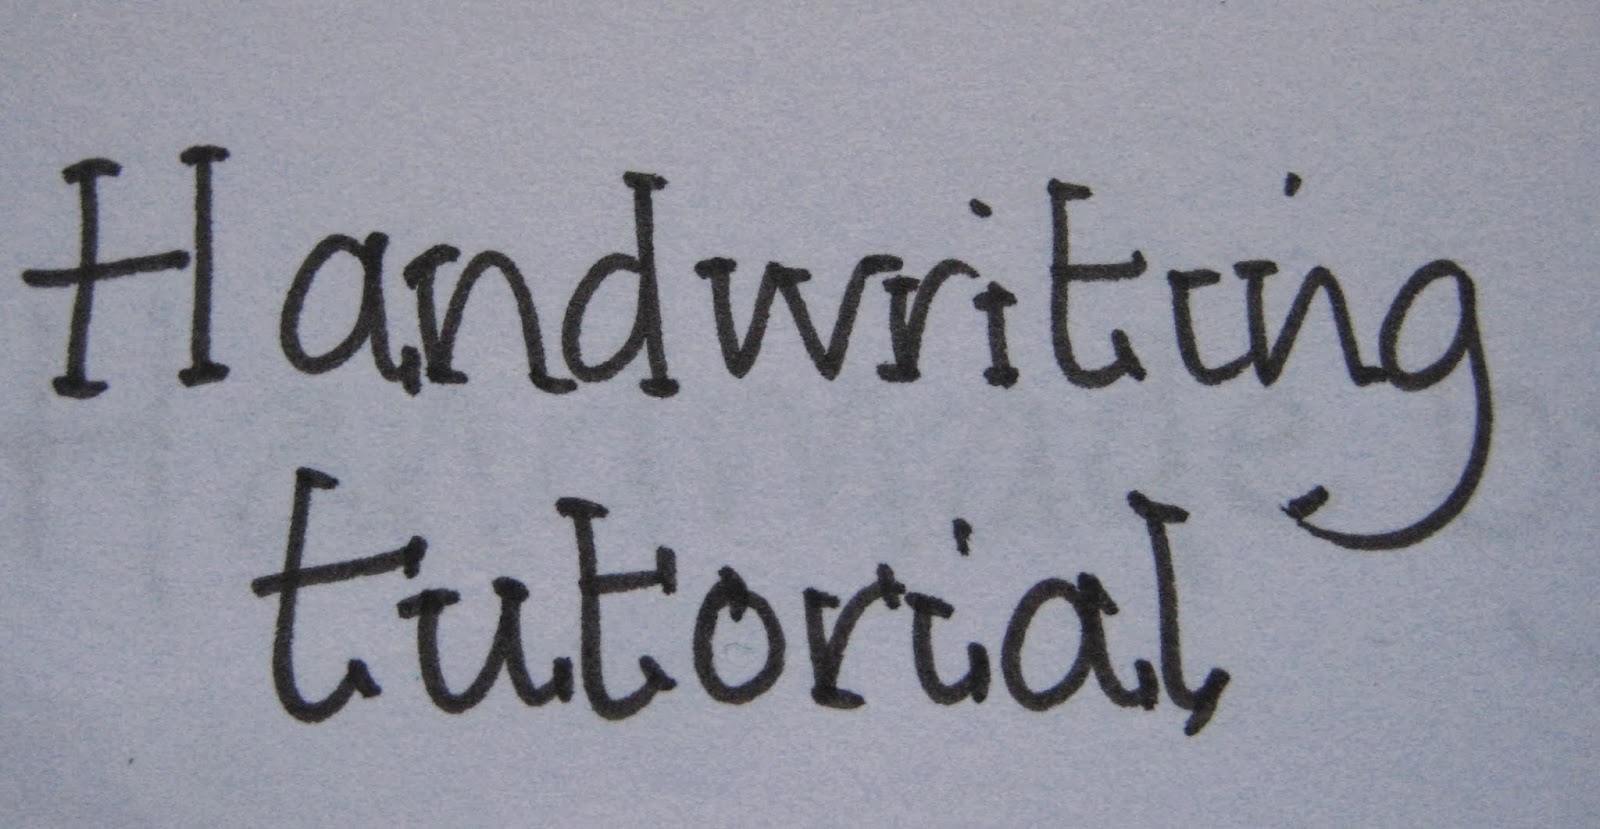 Handwriting
tutorial